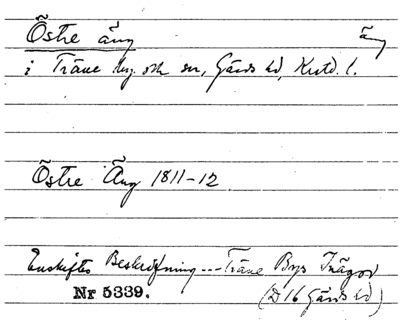 Östre äng äng
i Träne by och sn, Gärds hd, Krstd. l.
Östre Äng 1811-12
Enskiftes Beskrifning --- Träne Bys Inägor
Nr 5339. (D16 Gärds hd)